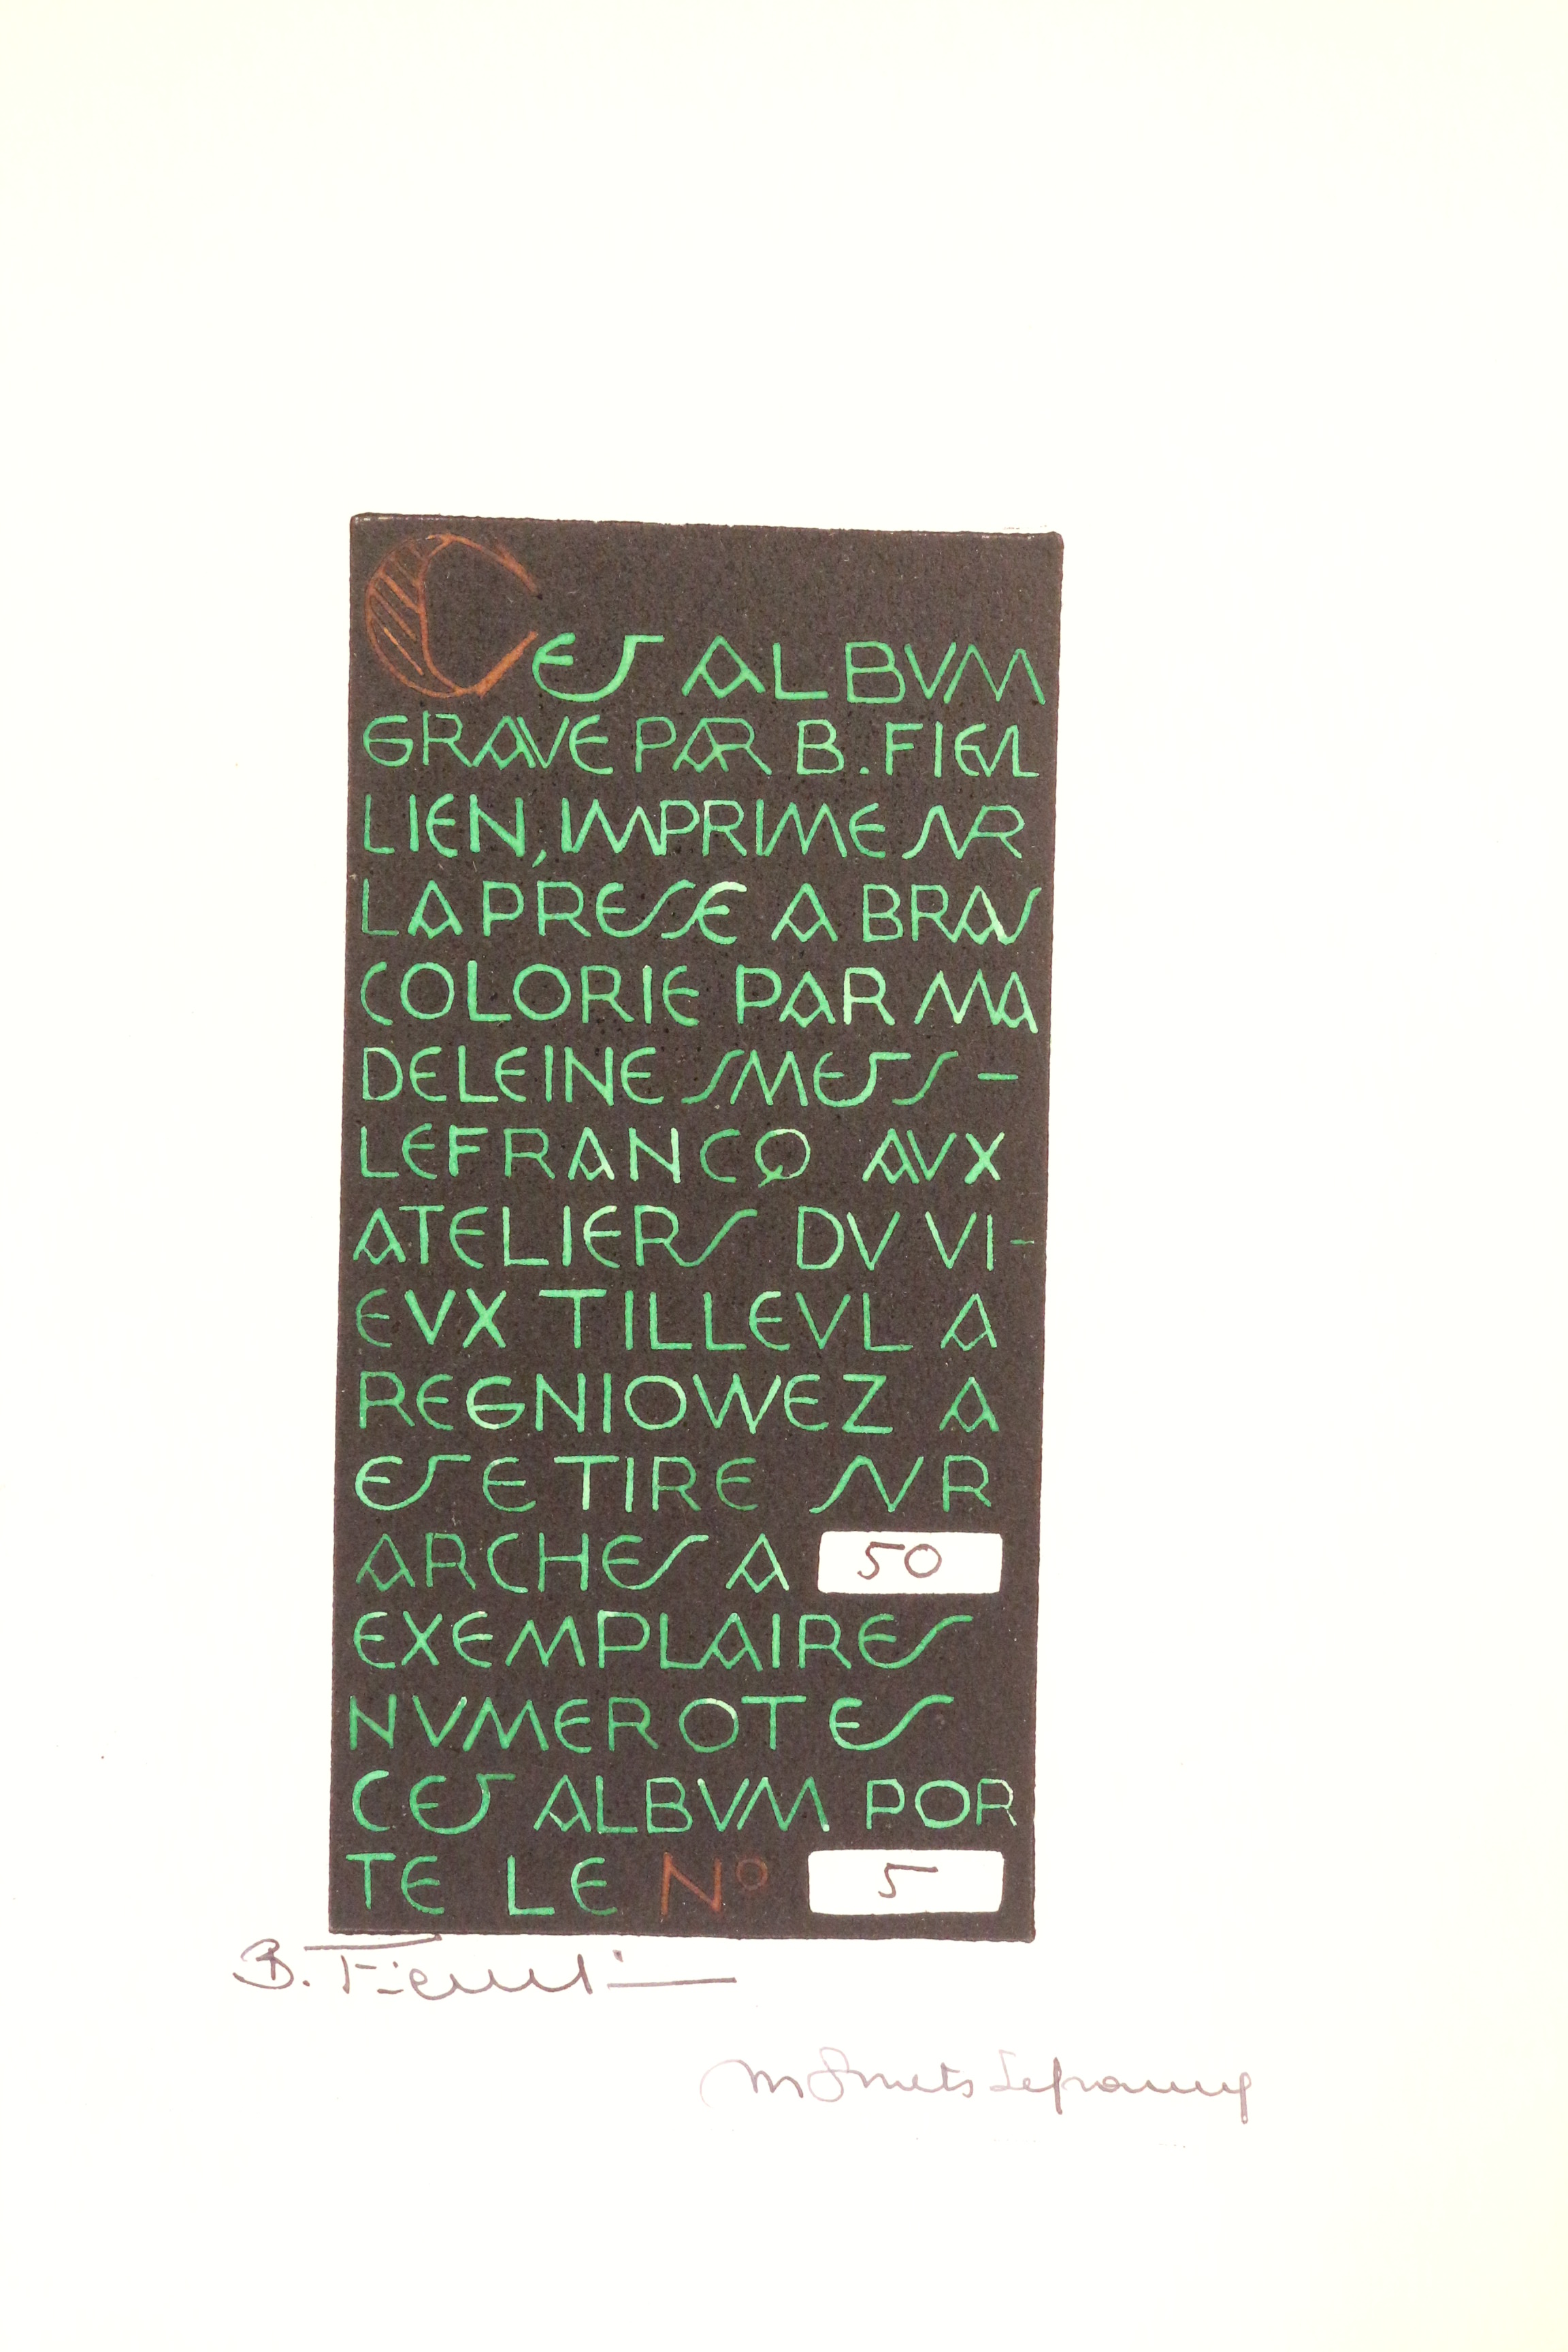 CET ALBVM
GRAVE PAR B. FIEVL
LIEN, IMPRIME SVR
LA PRESSE A BRAS
COLORIE PAR MA
DELEINE SMETS –
LEFRANCQ AVX
ATELIERS DV VI-
EVX TILLEVL A
REGNIOWEZ A
ETE TIRE SVR
ARCHES A 50
EXEMPLAIRES
NVMEROTES
CET ALBVM POR
TE LE Nº 5
B. Fieulli
M Smets Lefrancq